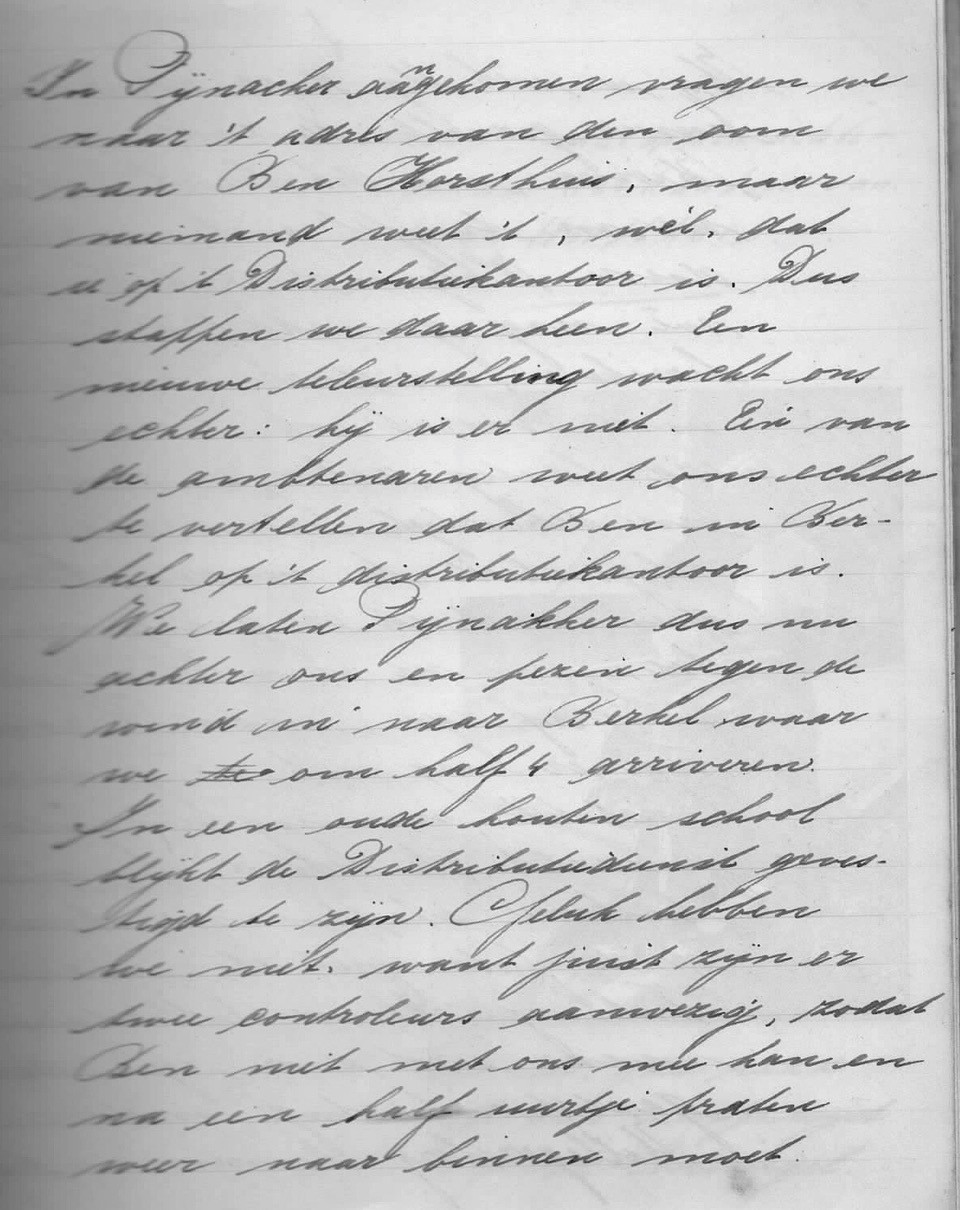 In Pijnacker aangekomen vragen we
naar 't adres van den oom
van Ben Horsthuis, maar
niemand weet 't, wèl, dat
ie op 't Distributiekantoor is. Dus
stappen we daar heen. Een
nieuwe teleurstelling wacht ons
echter: hij is er niet. Eén van
de ambtenaren weet ons echter
te vertellen dat Ben in Ber-
kel op 't distributiekantoor is.
We laten Pijnakker dus nu
achter ons en pezen tegen de
wind in naar Berkel waar
we om half 4 arriveren.
In een oude houten school
blijkt de Distributiedienst geves-
tigd te zijn. Geluk hebben
we niet. want juist zijn er
twee controleurs aanwezig, zodat
Ben niet met ons mee kan en
na een half uurtje praten
weer naar binnen moet.